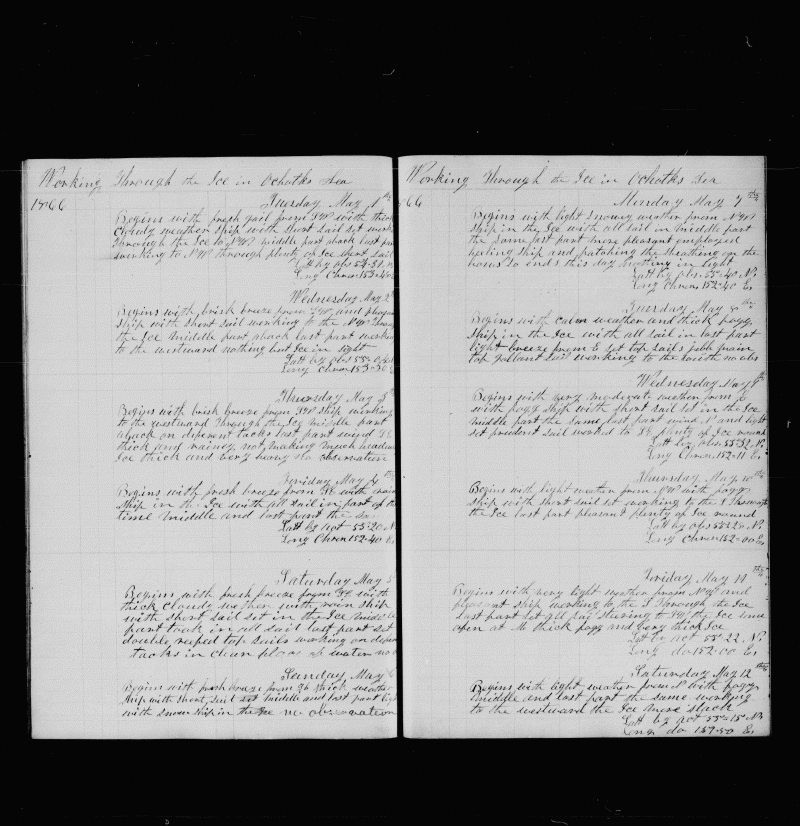 Working Through the Ice in Ochotks Sea
1866
Tuesday May 1th
Begins with fresh gail from SW with thick
cloudy weather ship with short sail set work
through the Ice to NW middle part aback last par
working to NW through plenty of Ice short sail
Latt by obs 54-31 N
Long Chron 153-45 E
Wednesday May 2th
Begins with brisk breeze from SW and pleasa
ship with short sail working to the NW Throu
the Ice middle part aback last part workin
to the westward nothing but Ice in sight
Latt by obs 55-0
Long Chron 153-30 E
Thursday May 3th
Begins with brisk breeze from SW ship working
to the westward Through the Ice middle part
aback on diferent tacks last part wind SE
thick and rainey not making much headwa
Ice thick and very heavy no observation
Friday May 4th
Begins with fresh breeze from SE with rain
ship in the Ice with all sail in part of the
time middle and last part the sa
Latt by act 55-20 N
Long Chron 152-40 E
Saturday May 5
Begins with fresh breeze from SE with
thick cloudy weather with rain ship
with short sail set in the Ice middle
part took in all sail last part set
double reefed top sails working on difere
tacks in clean places of water no
Sunday May 6
Begins with fresh breeze from thick weather
ship with short sail set middle and last part ligh
with snow ship in the Ice no observation
Working Through the Ice in Ochotks Sea
66
Monday May 7th
Begins with light snowey weather from NW
ship in the Ice with all sail in middle part
the same last part more pleasant employed
heeling ship and patching the sheathing on the
bows so ends this day nothing in sight
Latt by obs 55-40 N
Long Chron 152-40 E
Tuesday May 8th
Begins with calm weather and thick fogg
ship in the Ice with all sail in last part
light breeze from E set top sails jibb main
top gallant sail working to the south no obs
Wednesday May 9th
Begins with very moderate weather from
with fogg ship with short sail set in the Ice
middle part the same last part wind N and light
set prudent sail worked to plenty of Ice round
Latt by obs 55-32 N
Long Chron 152-11 E
Thursday May 10th
Begins with light weather from SW with fogg
ship with short sail set working to the S Through
the Ice last part pleasant plenty of Ice round
Latt by obs 55-20 N
Long Chron 152-00 E
Friday May 11th
Begins with very light weather from NW and
pleasant ship working to the S Through the Ice
last part set all sail steering to SW the Ice
open at thick fogg and very thick Ice
Latt by act 55-22 N
Long do 152-00 E
Saturday May 12th
Begins with light weather from S with fogg
middle and last part the same working
to the westward the Ice more slack
Latt by act 55-15 N
Long do 151-50 E